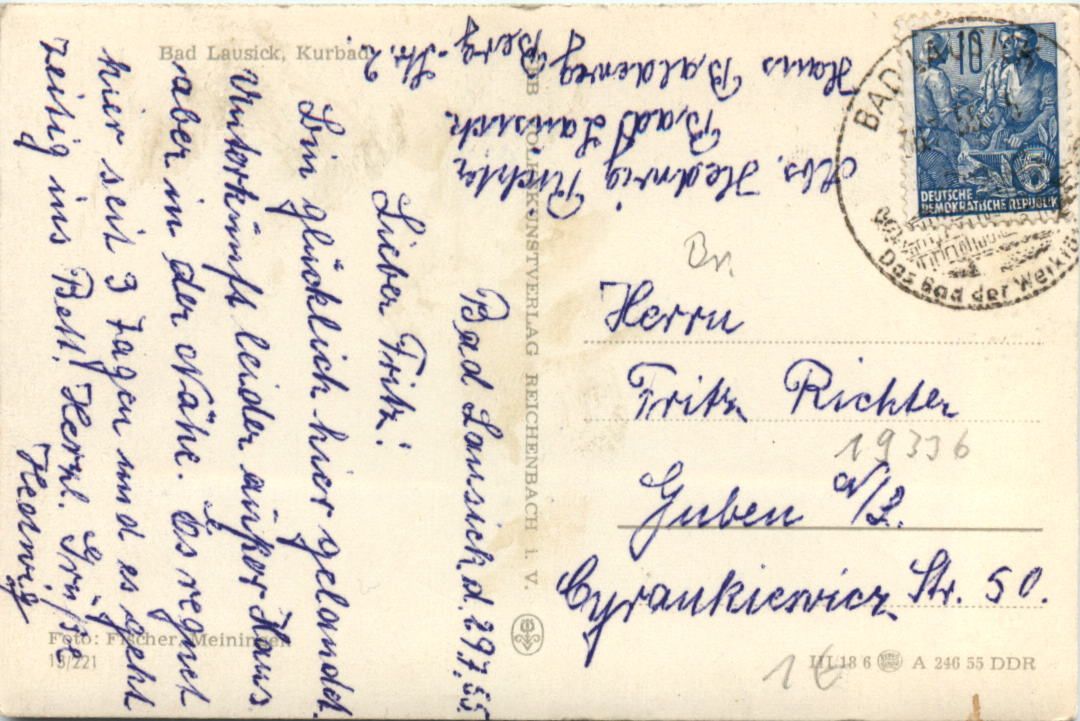 Bad Lausick, Kurbad
Bad Lausick d. 29.7.55
Lieber Fritz!
Bin glücklich hier gelandet.
Unterkunft leider außer Haus
aber in der Nähe. Es regnet
hier seit 3 Tagen und es geht
zeitig ins Bett! Herzl. Grüße
Hedwig
Abs. Hedwig Richter
Bad Lausick
Hans Balderweg
Berg-Str. 2
VOLKSKUNSTVERLAG REICHENBACH i. V.
10
DEUTSCHE
DEMOKRATISCHE REPUBLIK
BAD LAUSICK
Das Bad der
Bn.
Herrn
Fritz Richter
19336
Guben N/L.
Cyrankiewicz Str. 50.
Foto: Fischer, Meiningen
13/221
III 18 6 A 246 55 DDR
1 €